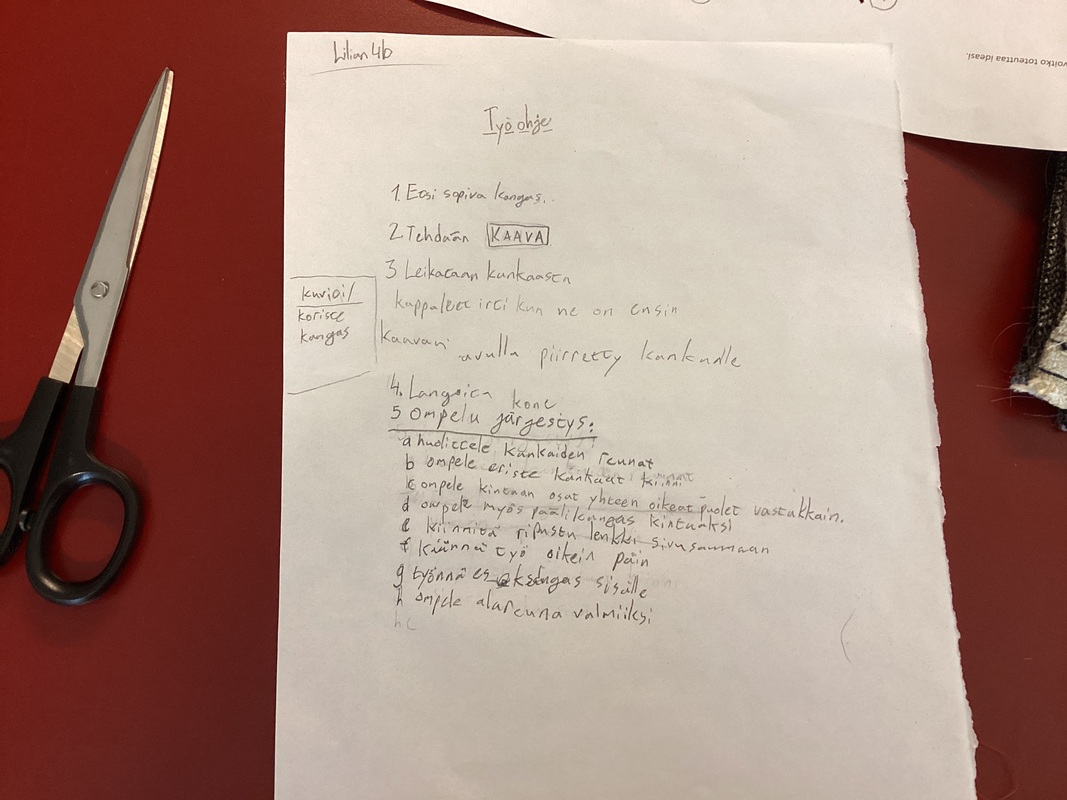 voitko toteuttaa ideasi.
Lilian 4b
Työ ohje
1. Etsi sopiva kangas.
2. Tehdään KAAVA
3 Leikataan kankaasta
kappaleet irti kun ne on ensin
kaavan avulla piirretty kankaalle
kuvioi/
koriste
kangas
4. Langoita kone
5 Ompelu järjestys:
a huolittele kankaiden reunat
b ompele eriste kankaat kiinni
c ompele kintaan osat yhteen oikeat puolet vastakkain.
d ompele myös päälikangas kintaaksi
e kiinnitä ripustu lenkki sivusaumaan
f käännä työ oikein päin
g työnnä sisälle
h ompele alareuna valmiiksi